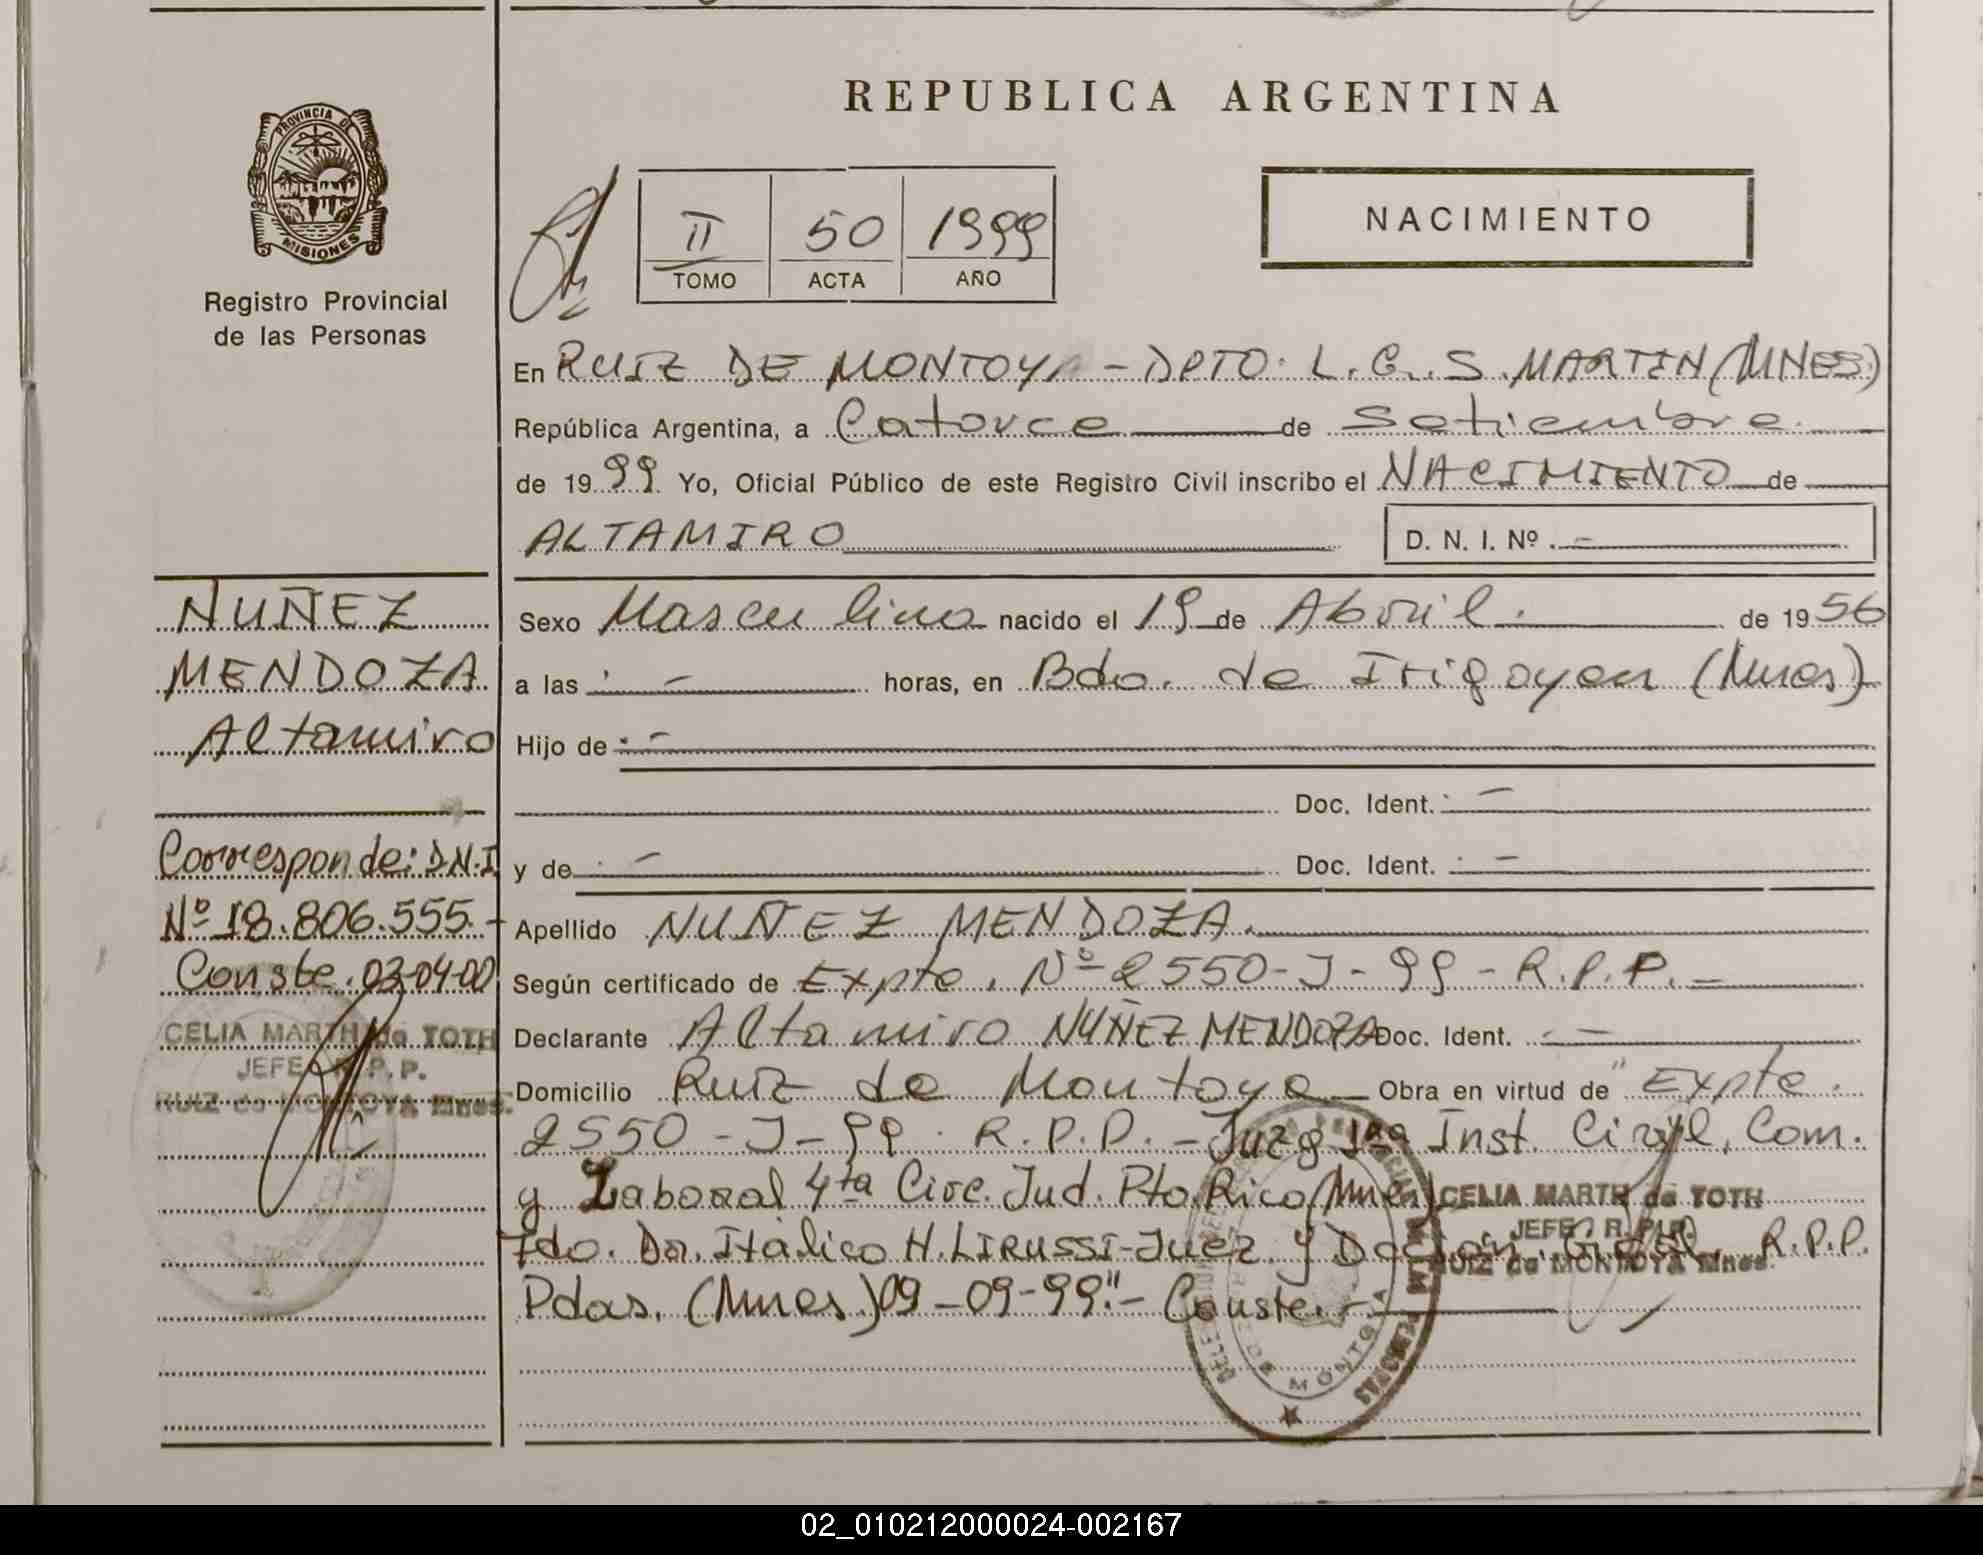 REPUBLICA ARGENTINA
PROVINCIA DE
MISIONES
Registro Provincial
de las Personas
II 50 1999
TOMO ACTA AÑO
NACIMIENTO
En RUIZ DE MONTOYA - DPTO. L. G. S. MARTIN (MNES.)
República Argentina, a Catorce de Setiembre
de 1999 Yo, Oficial Público de este Registro Civil inscribo el NACIMIENTO de
ALTAMIRO D. N. I. Nº -
NUÑEZ
MENDOZA
Altamiro
Corresponde: D.N.I
Nº 18.806.555.-
Conste. 03-04-00
CELIA MARTH de TOTH
JEFE R.P.P.
RUIZ de MONTOYA Mnes.
Sexo Masculino nacido el 19 de Abril. de 1956
a las - horas, en Bdo. de Irigoyen (Mnes)
Hijo de -
Doc. Ident. -
y de - Doc. Ident. -
Apellido NUÑEZ MENDOZA.
Según certificado de Expte. Nº 2550-J-99-R.P.P.-
Declarante Altamiro NUÑEZ MENDOZA Doc. Ident. -
Domicilio Ruiz de Montoya Obra en virtud de "Expte.
2550-J-99. R.P.P. - Juzg 1ra Inst. Civil, Com.
y Laboral 4ta Circ. Jud. Pto. Rico (Mnes)
Fdo. Dr. Itálico H. LIRUSSI-Juez y R.P.P.
Pdas. (Mnes.) 09-09-99".- Conste.-
CELIA MARTH de TOTH
JEFE R.P.P.
RUIZ de MONTOYA Mnes.
DE MONTOYA
02_010212000024-002167